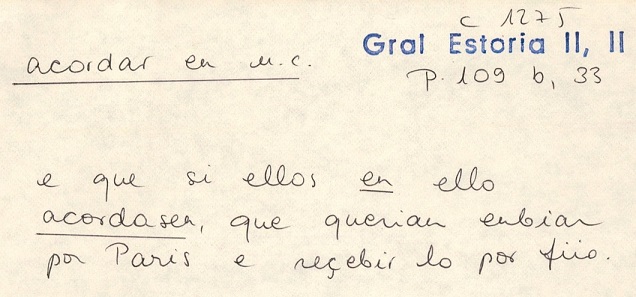 c 1275
Gral Estoria II, II
acordar en u.c.
p. 109 b, 33
e que si ellos en ello
acordasen, que querian enbiar
por Paris e reçebir lo por fijo.